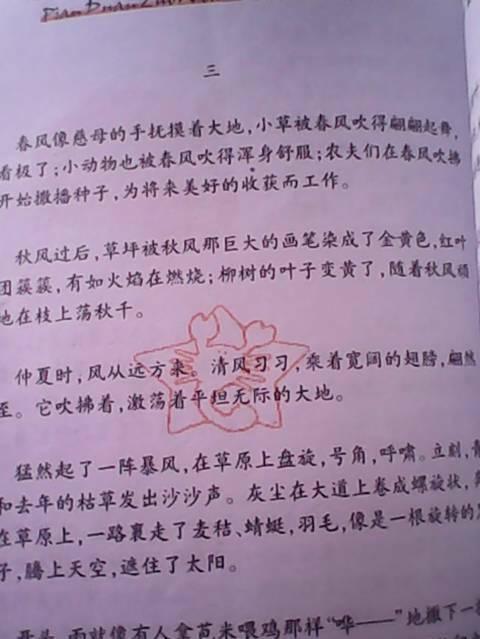 三
春风像慈母的手抚摸着大地，小草被春风吹得翩翩起舞，
看极了；小动物也被春风吹得浑身舒服；农夫们在春风吹拂
开始撒播种子，为将来美好的收获而工作。
秋风过后，草坪被秋风那巨大的画笔染成了金黄色，红叶
团簇簇，有如火焰在燃烧；柳树的叶子变黄了，随着秋风顽
地在枝上荡秋千。
仲夏时，风从远方来。清风习习，乘着宽阔的翅膀，翩然
至。它吹拂着，激荡着平坦无际的大地。
猛然起了一阵暴风，在草原上盘旋，号角，呼啸。立刻，
和去年的枯草发出沙沙声。灰尘在大道上卷成螺旋状，
在草原上，一路裹走了麦秸、蜻蜓，羽毛，像是一根旋转的
子，腾上天空，遮住了太阳。
开头，雨就像有人拿苞米喂鸡那样“哗——”地撒下一